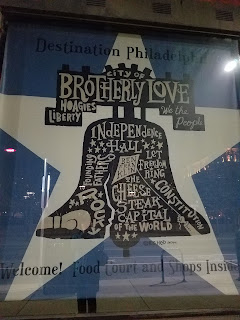 Destination Philadelphi
CITY OF
BROTHERLY LOVE
HOAGIES
LIBERTY
We the
People
INDEPENDENCE
HALL
LET
FREEDOM
RING
THE
CHEESE
STEAK
CAPITAL
OF THE WORLD
CONSTITUTION
ROCKY
Welcome! Food Court and Shops Insid